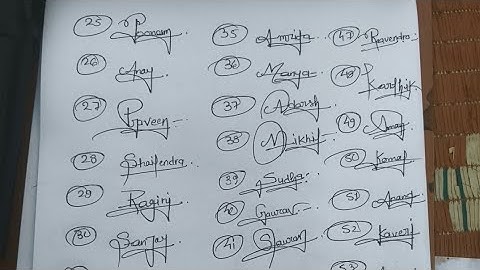 25 Poonam
26 Anay
27 Praveen
28 Shailendra
29 Ragini
30 Sanjay
35 Amrita
36 Manya
37 Adarsh
38 Nikhil
39 Sudha
40 Gaurav
41 Gaurav
47 Ravendra
48 Kardhik
49 Amay
50 Komal
51 Anand
52 Kaveri
53